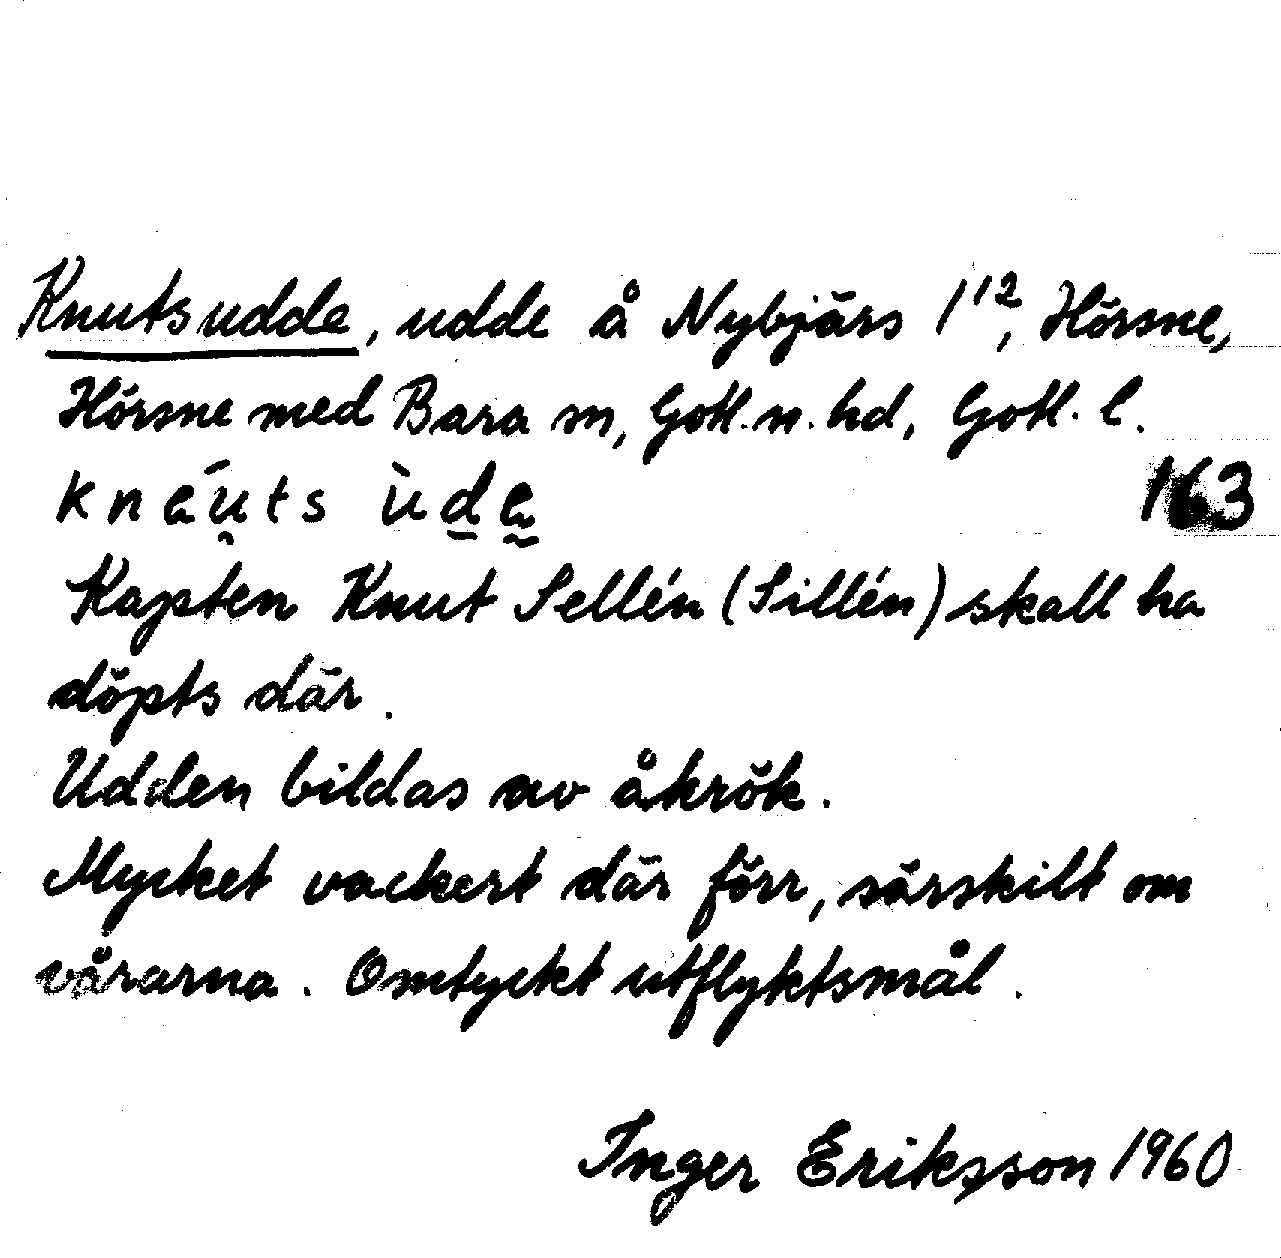 Knutsudde, udde å Nybjärs 1¹², Hörsne,
Hörsne med Bara sn, Gotl. n. hd, Gotl. l.
knéu̯ts ùde 163
Kapten Knut Sellén (Sillén) skall ha
döpts där.
Udden bildas av åkrök.
Mycket vackert där förr, särskilt om
vårarna. Omtyckt utflyktsmål.
Inger Eriksson 1960